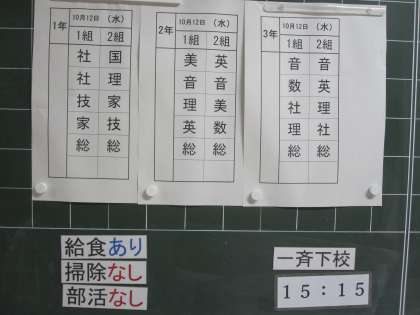 1年 10月12日 (水)
1組 2組
社 国
社 理
技 家
家 技
総 総
2年 10月12日 (水)
1組 2組
美 英
音 音
理 美
英 数
総 総
3年 10月12日 (水)
1組 2組
音 音
数 英
社 理
理 社
総 総
給食あり
掃除なし
部活なし
一斉下校
15:15